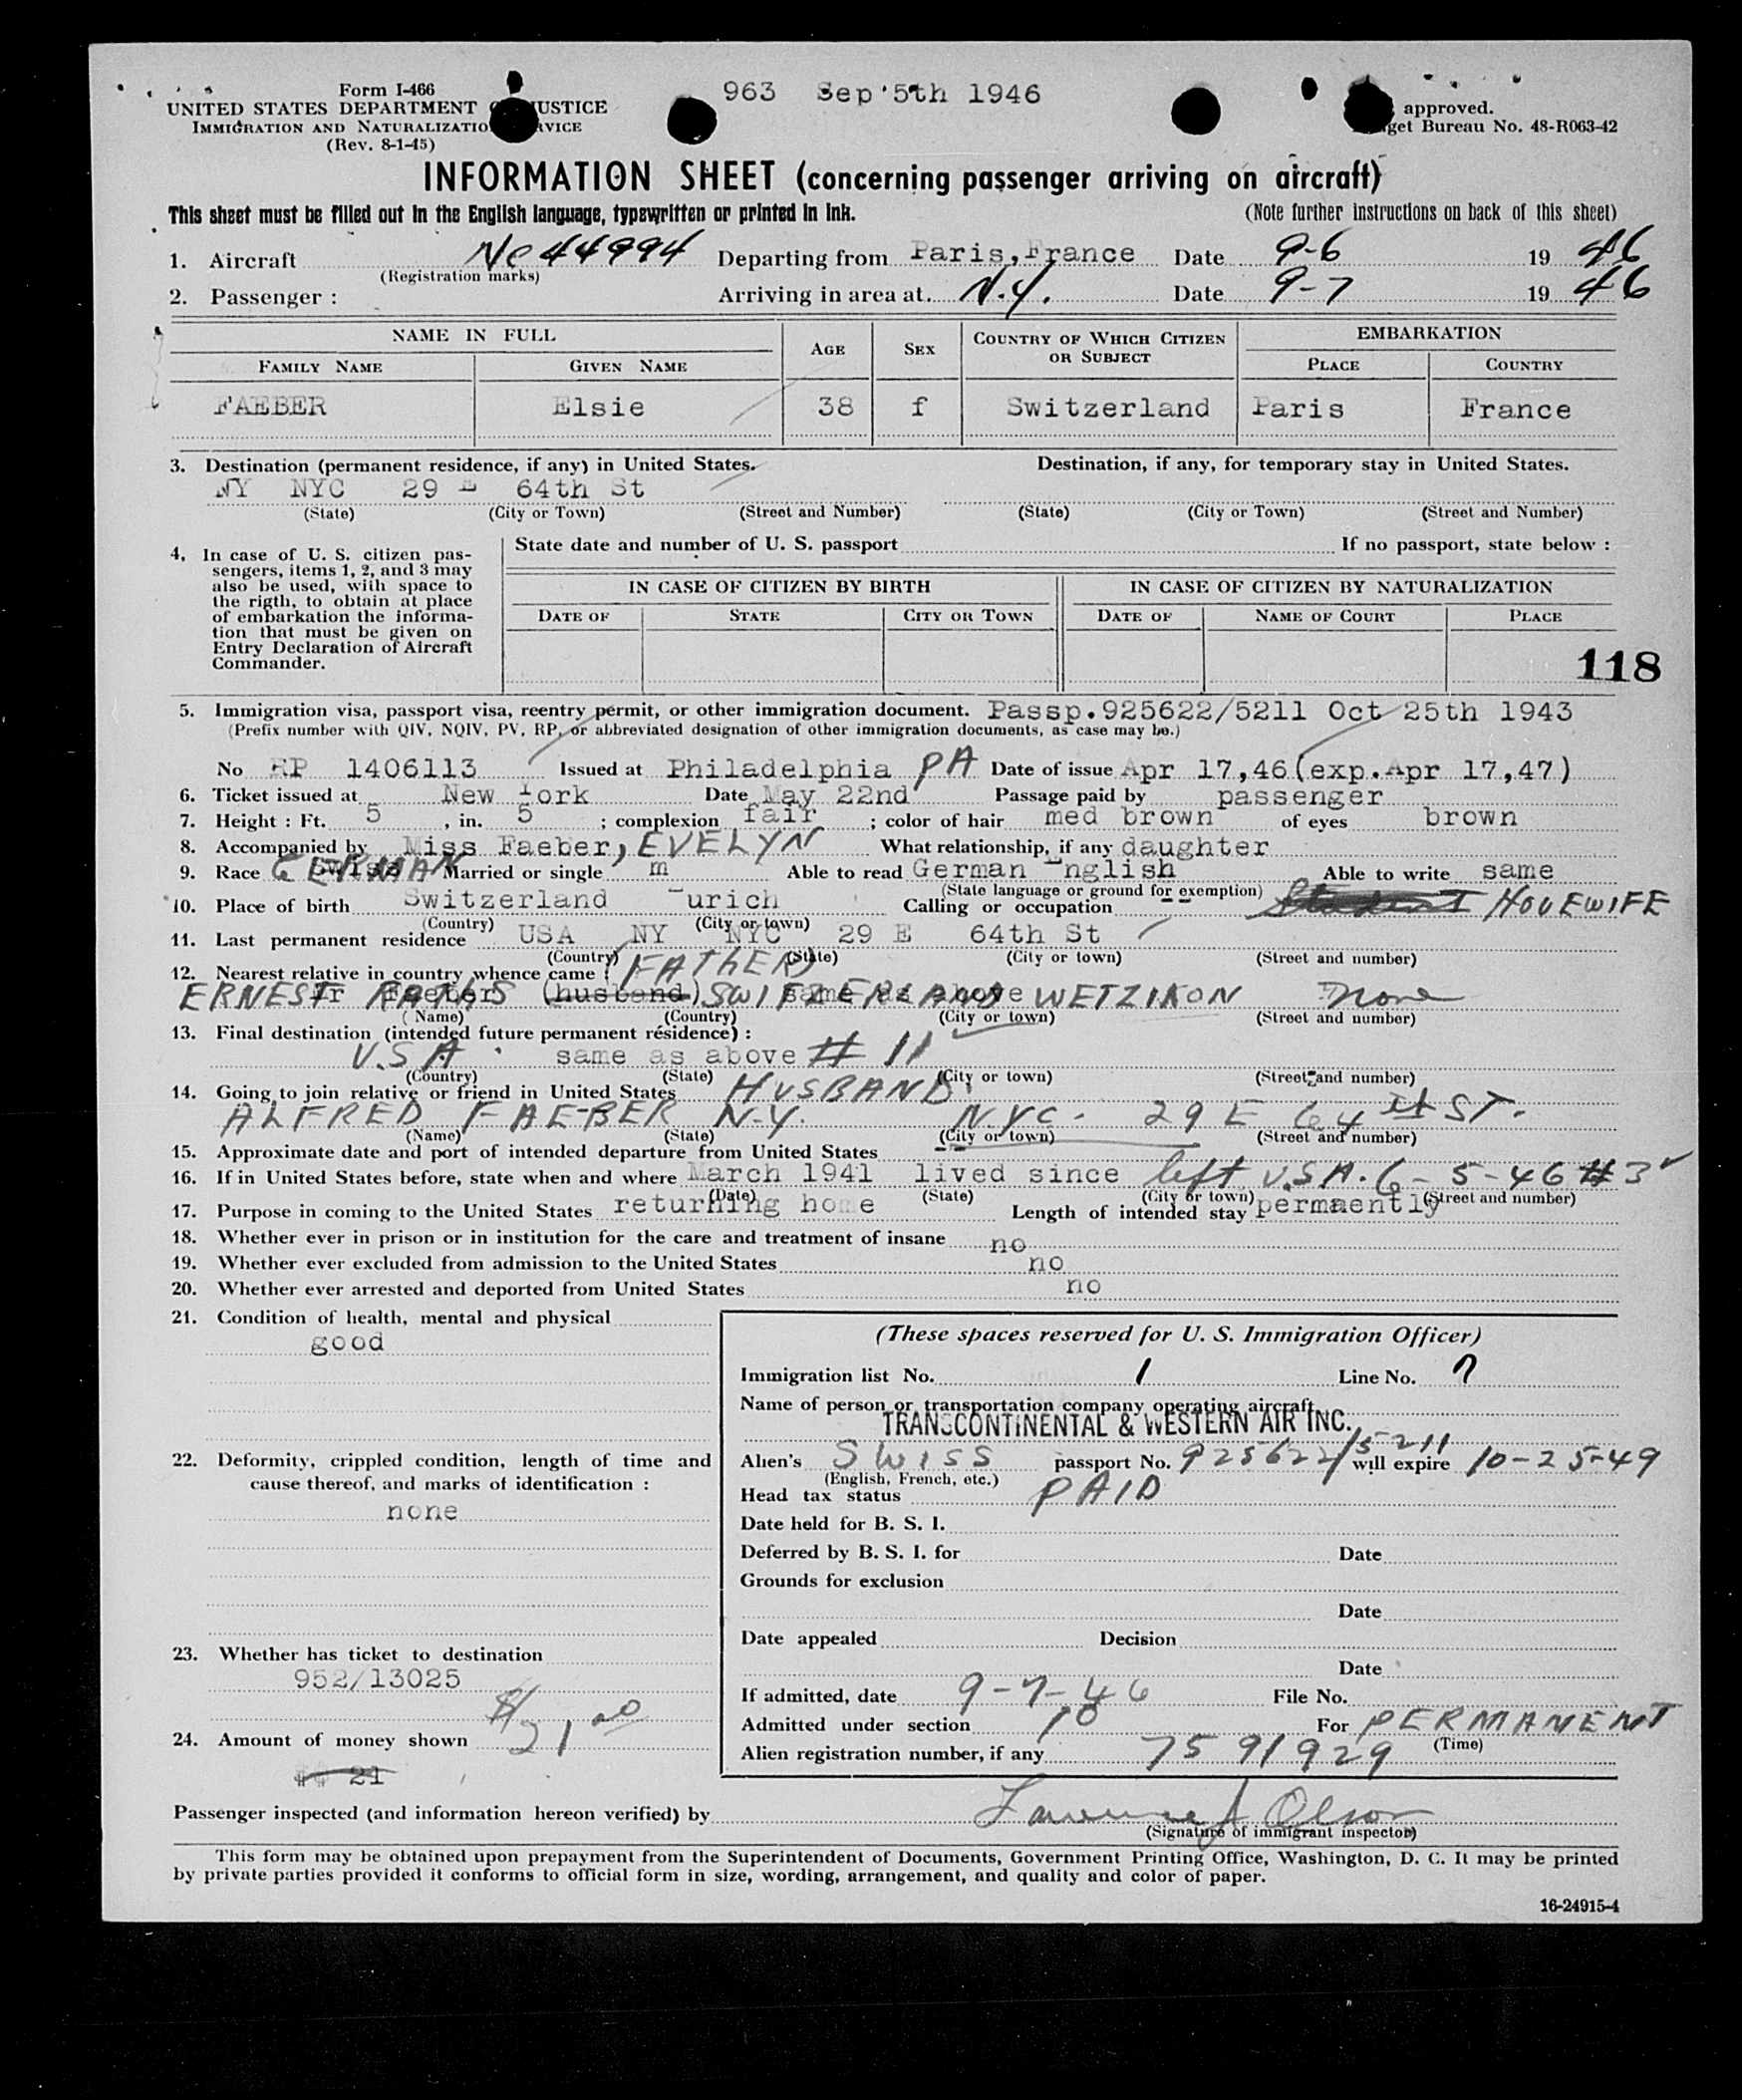 Form I-466
UNITED STATES DEPARTMENT USTICE
IMMIGRATION AND NATURALIZATIO VICE
(Rev. 8-1-45)
963 Sep 5th 1946
approved.
get Bureau No. 48-R063-42
INFORMATION SHEET (concerning passenger arriving on aircraft)
This sheet must be filled out in the English language, typewritten or printed in ink. (Note further instructions on back of this sheet)
1. Aircraft Nc 44994 Departing from Paris, France Date 9-6 1946
(Registration marks)
2. Passenger : Arriving in area at N.Y. Date 9-7 1946
NAME IN FULL AGE SEX COUNTRY OF WHICH CITIZEN OR SUBJECT EMBARKATION
FAMILY NAME GIVEN NAME PLACE COUNTRY
FAEBER Elsie 38 f Switzerland Paris France
3. Destination (permanent residence, if any) in United States. Destination, if any, for temporary stay in United States.
NY NYC 29 E 64th St
(State) (City or Town) (Street and Number) (State) (City or Town) (Street and Number)
4. In case of U. S. citizen pas-
sengers, items 1, 2, and 3 may
also be used, with space to
the rigth, to obtain at place
of embarkation the informa-
tion that must be given on
Entry Declaration of Aircraft
Commander.
State date and number of U. S. passport If no passport, state below :
IN CASE OF CITIZEN BY BIRTH IN CASE OF CITIZEN BY NATURALIZATION
DATE OF STATE CITY OR TOWN DATE OF NAME OF COURT PLACE
118
5. Immigration visa, passport visa, reentry permit, or other immigration document. Passp.925622/5211 Oct 25th 1943
(Prefix number with QIV, NQIV, PV, RP, or abbreviated designation of other immigration documents, as case may be.)
No RP 1406113 Issued at Philadelphia PA Date of issue Apr 17,46(exp.Apr 17,47)
6. Ticket issued at New York Date May 22nd Passage paid by passenger
7. Height : Ft. 5 , in. 5 ; complexion fair ; color of hair med brown of eyes brown
8. Accompanied by Miss Faeber, EVELYN What relationship, if any daughter
9. Race Swiss GERMAN Married or single m Able to read German English Able to write same
(State language or ground for exemption)
10. Place of birth Switzerland urich Calling or occupation Student HOUEWIFE
(Country) (City or town)
11. Last permanent residence USA NY NYC 29 E 64th St
(Country) (State) (City or town) (Street and number)
12. Nearest relative in country whence came (FATHER)
ERNEST Faeber (husband) SWITZERLAND same as above WETZIKON none
(Name) (Country) (City or town) (Street and number)
13. Final destination (intended future permanent résidence) :
U.S.A. same as above # 11
(Country) (State) (City or town) (Street and number)
14. Going to join relative or friend in United States HUSBAND
ALFRED FAEBER N.Y. N.Y.C. 29 E 64th ST.
(Name) (State) (City or town) (Street and number)
15. Approximate date and port of intended departure from United States
16. If in United States before, state when and where March 1941 lived since left U.S.A. 6-5-46 #3
(Date) (State) (City or town) (Street and number)
17. Purpose in coming to the United States returning home Length of intended stay permaently
18. Whether ever in prison or in institution for the care and treatment of insane no
19. Whether ever excluded from admission to the United States no
20. Whether ever arrested and deported from United States no
21. Condition of health, mental and physical
good
22. Deformity, crippled condition, length of time and
cause thereof, and marks of identification :
none
23. Whether has ticket to destination
952/13025
24. Amount of money shown $21.00
21
(These spaces reserved for U. S. Immigration Officer)
Immigration list No. 1 Line No. 7
Name of person or transportation company operating aircraft
TRANSCONTINENTAL & WESTERN AIR INC.
Alien's SWISS passport No. 925622/5211 will expire 10-25-49
(English, French, etc.)
Head tax status PAID
Date held for B. S. I.
Deferred by B. S. I. for Date
Grounds for exclusion
Date
Date appealed Decision
Date
If admitted, date 9-7-46 File No.
Admitted under section 10 For PERMANENT
(Time)
Alien registration number, if any 7591929
Passenger inspected (and information hereon verified) by Lawrence J Olson
(Signature of immigrant inspector)
This form may be obtained upon prepayment from the Superintendent of Documents, Government Printing Office, Washington, D. C. It may be printed
by private parties provided it conforms to official form in size, wording, arrangement, and quality and color of paper.
16-24915-4